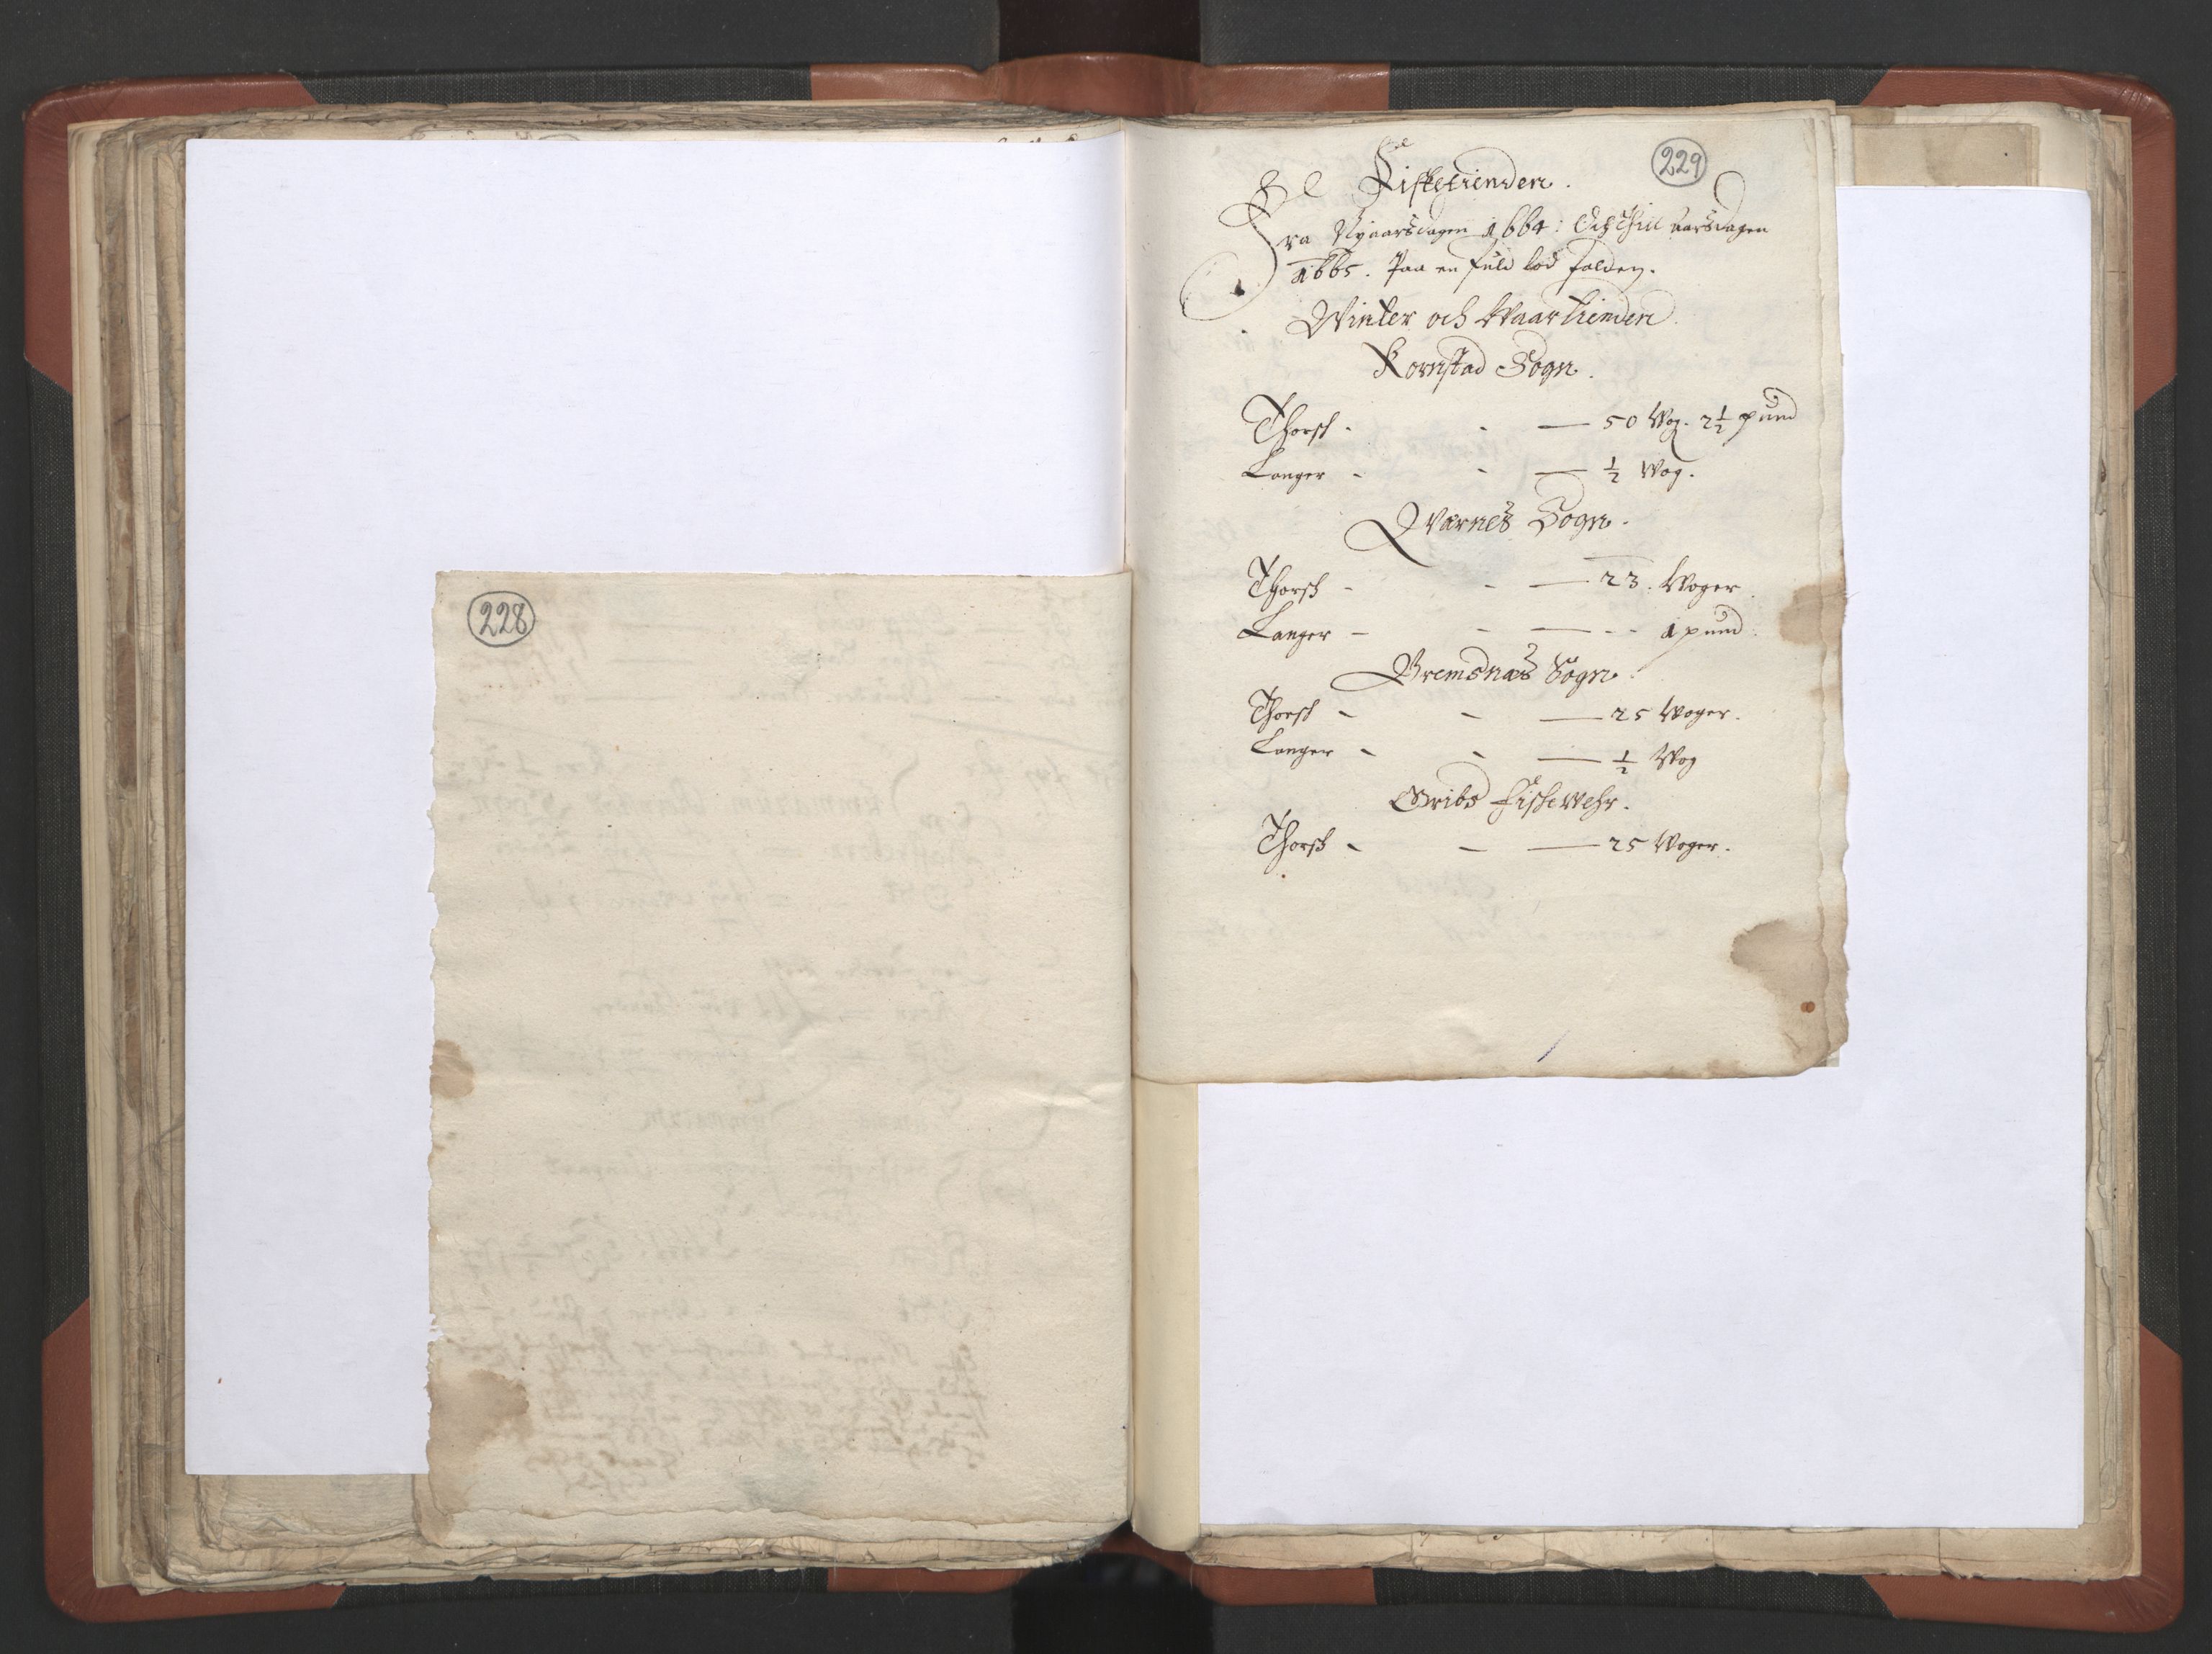 228
229
Fisketienden.
Fra Nyaarsdagen 1664: Och Thill aarsdagen
1665. Paa en fuld lod falden.
Winter och Waartienden
Kornstad Sogn.
Thorsk - - — 50 Wog. 2½ pund
Langer - - — ½ Wog.
Qvarnes Sogn.
Thorsk - - — 23. Woger.
Langer - - — - - 1 pund.
Bremsnæs Sogn.
Thorsk - - — 25 Woger.
Langer - - — ½ Wog
Gribs fiskewehr.
Thorsk - - — 25 Woger.